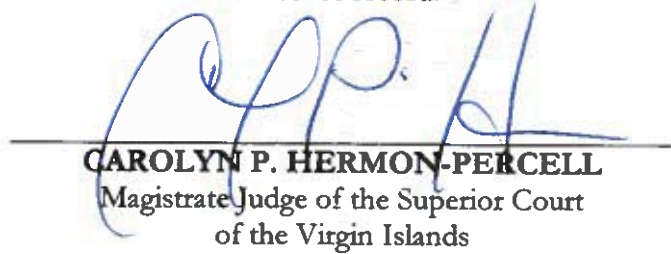 CAROLYN P. HERMON-PERCELL
Magistrate Judge of the Superior Court
of the Virgin Islands